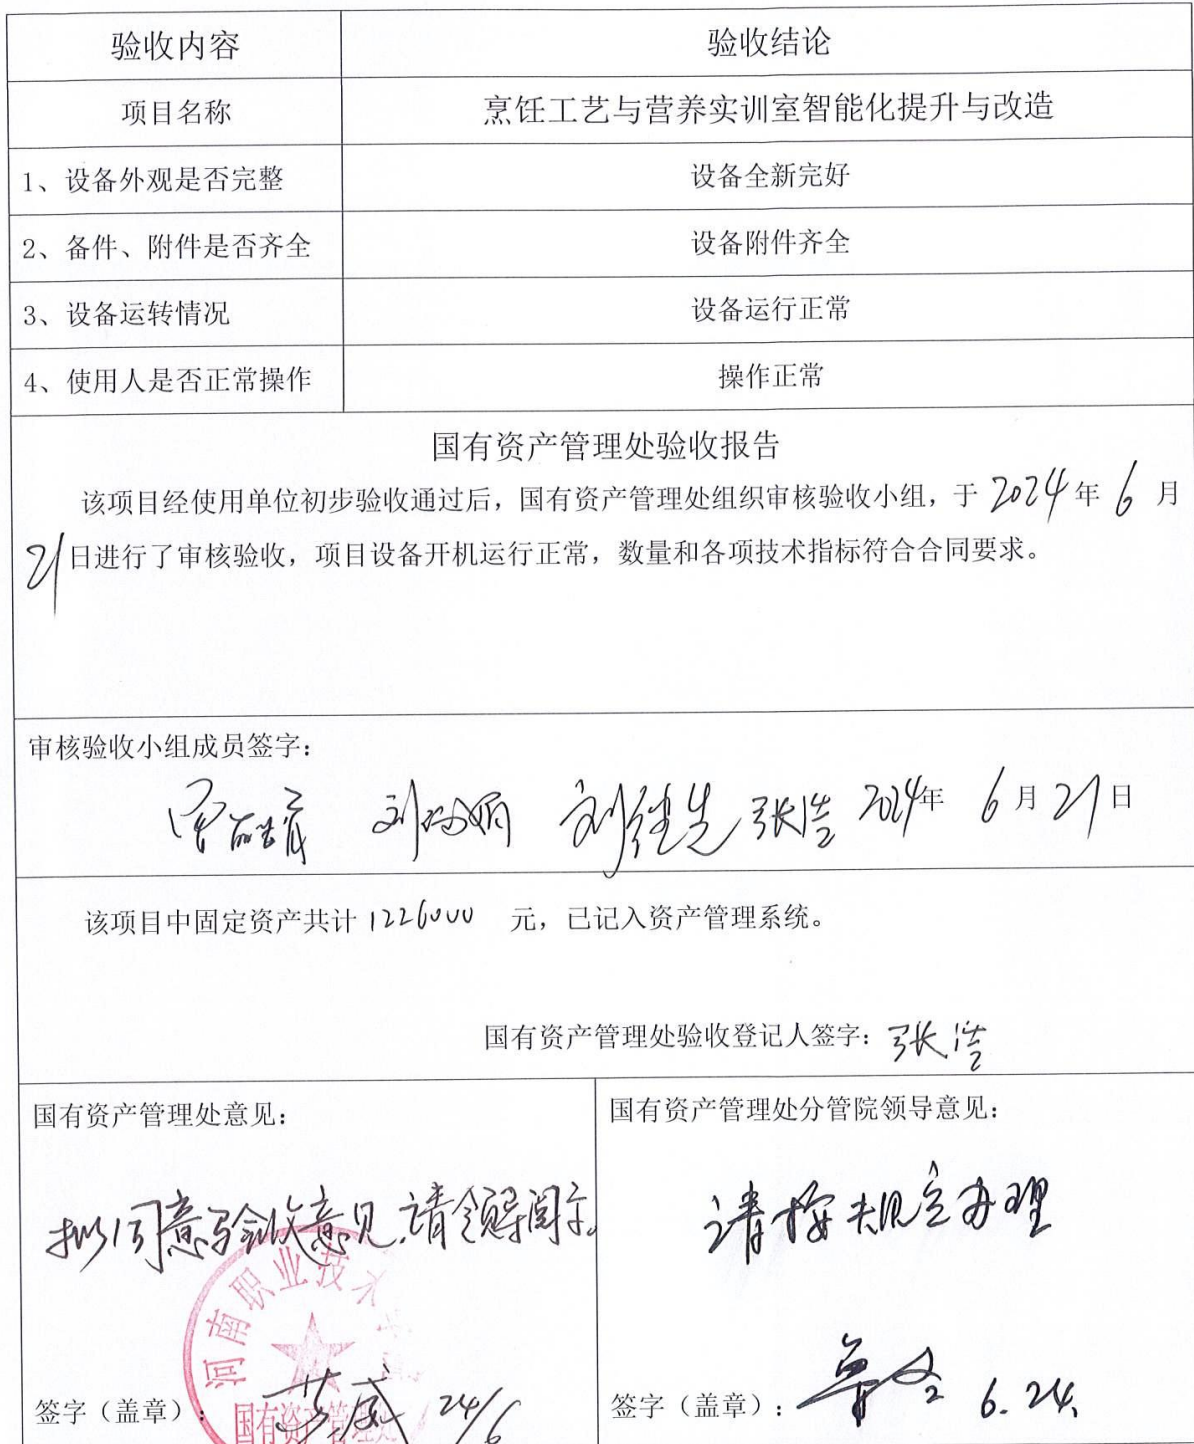 验收内容 验收结论
项目名称 烹饪工艺与营养实训室智能化提升与改造
1、设备外观是否完整 设备全新完好
2、备件、附件是否齐全 设备附件齐全
3、设备运转情况 设备运行正常
4、使用人是否正常操作 操作正常
国有资产管理处验收报告
该项目经使用单位初步验收通过后，国有资产管理处组织审核验收小组，于 2024 年 6 月
21日进行了审核验收，项目设备开机运行正常，数量和各项技术指标符合合同要求。
审核验收小组成员签字：
张浩 2024年 6月21日
该项目中固定资产共计 1226000 元，已记入资产管理系统。
国有资产管理处验收登记人签字：张浩
国有资产管理处意见：
拟同意验收意见，请领导阅示。
河南职业技术
国有资产管理处
签字（盖章）： 24/6
国有资产管理处分管院领导意见：
请按规定办理
签字（盖章）： 6.24.